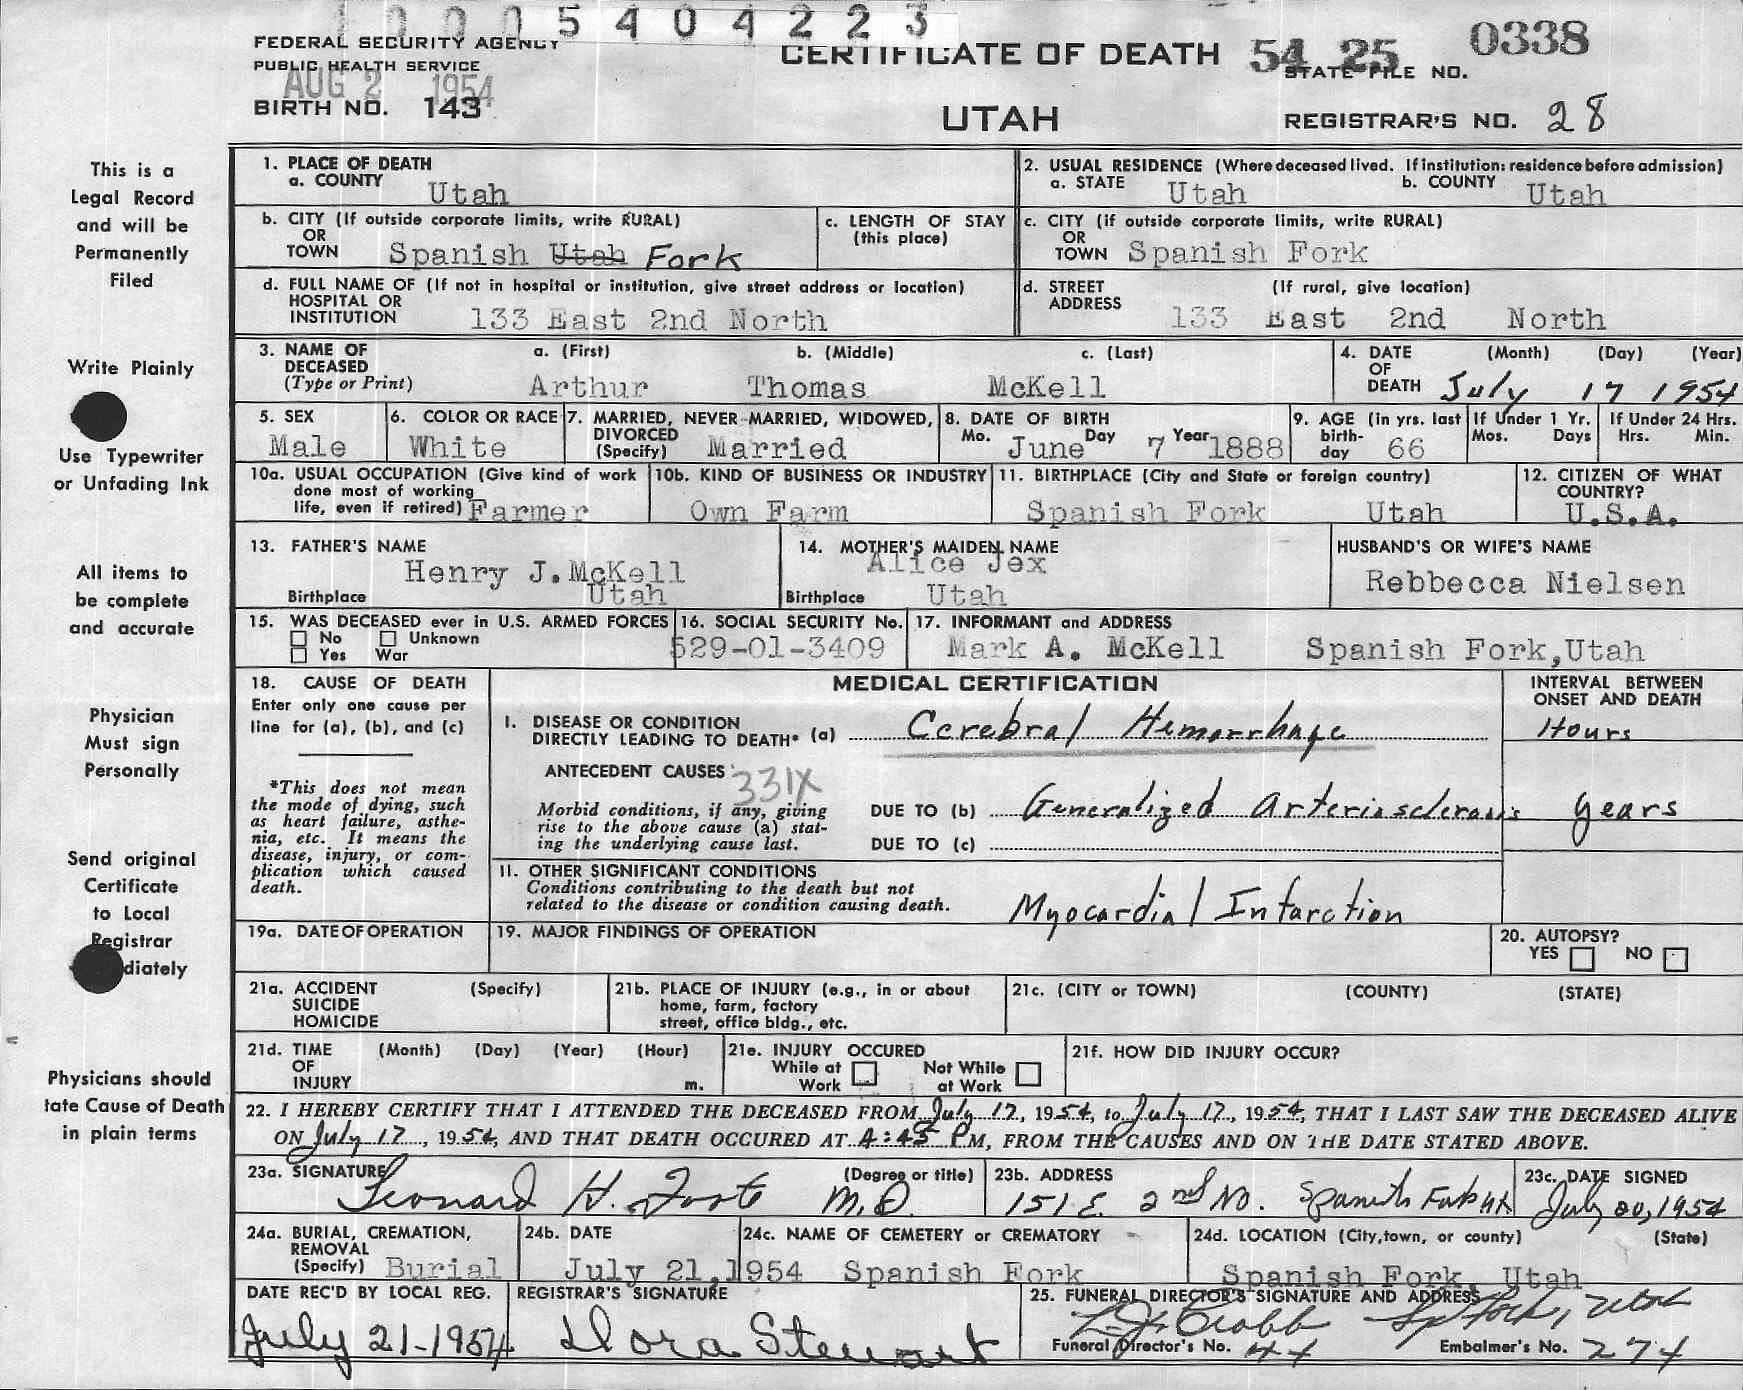 1 0 0 0 5 4 0 4 2 2 3
FEDERAL SECURITY AGENCY
PUBLIC HEALTH SERVICE
AUG 2 1954
BIRTH NO. 143
CERTIFICATE OF DEATH
UTAH
54 25 0338
STATE FILE NO.
REGISTRAR'S NO. 28
This is a
Legal Record
and will be
Permanently
Filed
Write Plainly
Use Typewriter
or Unfading Ink
All items to
be complete
and accurate
Physician
Must sign
Personally
Send original
Certificate
to Local
Registrar
diately
Physicians should
tate Cause of Death
in plain terms
1. PLACE OF DEATH
a. COUNTY Utah
2. USUAL RESIDENCE (Where deceased lived. If institution: residence before admission)
a. STATE Utah b. COUNTY Utah
b. CITY (If outside corporate limits, write RURAL)
OR
TOWN Spanish Utah Fork
c. LENGTH OF STAY
(this place)
c. CITY (if outside corporate limits, write RURAL)
OR
TOWN Spanish Fork
d. FULL NAME OF (If not in hospital or institution, give street address or location)
HOSPITAL OR
INSTITUTION 133 East 2nd North
d. STREET (If rural, give location)
ADDRESS 133 East 2nd North
3. NAME OF DECEASED (Type or Print)
a. (First) b. (Middle) c. (Last)
Arthur Thomas McKell
4. DATE OF DEATH (Month) (Day) (Year)
July 17 1954
5. SEX
Male
6. COLOR OR RACE
White
7. MARRIED, NEVER MARRIED, WIDOWED,
DIVORCED
(Specify) Married
8. DATE OF BIRTH
Mo. June Day 7 Year 1888
9. AGE (in yrs. last
birth-
day 66
If Under 1 Yr.
Mos. Days
If Under 24 Hrs.
Hrs. Min.
10a. USUAL OCCUPATION (Give kind of work
done most of working
life, even if retired) Farmer
10b. KIND OF BUSINESS OR INDUSTRY
Own Farm
11. BIRTHPLACE (City and State or foreign country)
Spanish Fork Utah
12. CITIZEN OF WHAT
COUNTRY?
U.S.A.
13. FATHER'S NAME
Henry J. McKell
Birthplace Utah
14. MOTHER'S MAIDEN NAME
Alice Jex
Birthplace Utah
HUSBAND'S OR WIFE'S NAME
Rebbecca Nielsen
15. WAS DECEASED ever in U.S. ARMED FORCES
No Unknown
Yes War
16. SOCIAL SECURITY No.
529-01-3409
17. INFORMANT and ADDRESS
Mark A. McKell Spanish Fork, Utah
18. CAUSE OF DEATH
Enter only one cause per
line for (a), (b), and (c)
*This does not mean
the mode of dying, such
as heart failure, asthe-
nia, etc. It means the
disease, injury, or com-
plication which caused
death.
MEDICAL CERTIFICATION
INTERVAL BETWEEN
ONSET AND DEATH
I. DISEASE OR CONDITION
DIRECTLY LEADING TO DEATH* (a) Cerebral Hemorrhage Hours
ANTECEDENT CAUSES 331X
Morbid conditions, if any, giving
rise to the above cause (a) stat-
ing the underlying cause last.
DUE TO (b) Generalized Arteriosclerosis years
DUE TO (c)
11. OTHER SIGNIFICANT CONDITIONS
Conditions contributing to the death but not
related to the disease or condition causing death.
Myocardial Infarction
19a. DATE OF OPERATION
19. MAJOR FINDINGS OF OPERATION
20. AUTOPSY?
YES NO
21a. ACCIDENT (Specify)
SUICIDE
HOMICIDE
21b. PLACE OF INJURY (e.g., in or about
home, farm, factory
street, office bldg., etc.
21c. (CITY or TOWN) (COUNTY) (STATE)
21d. TIME (Month) (Day) (Year) (Hour)
OF
INJURY m.
21e. INJURY OCCURED
While at Work Not While at Work
21f. HOW DID INJURY OCCUR?
22. I HEREBY CERTIFY THAT I ATTENDED THE DECEASED FROM July 17, 1954, to July 17, 1954, THAT I LAST SAW THE DECEASED ALIVE
ON July 17, 1954, AND THAT DEATH OCCURED AT 4:45 PM, FROM THE CAUSES AND ON THE DATE STATED ABOVE.
23a. SIGNATURE (Degree or title)
Leonard H. Foote M.D.
23b. ADDRESS
151 E. 2nd No. Spanish Fork Ut
23c. DATE SIGNED
July 20, 1954
24a. BURIAL, CREMATION,
REMOVAL
(Specify) Burial
24b. DATE
July 21, 1954
24c. NAME OF CEMETERY or CREMATORY
Spanish Fork
24d. LOCATION (City, town, or county) (State)
Spanish Fork, Utah
DATE REC'D BY LOCAL REG.
July 21-1954
REGISTRAR'S SIGNATURE
Dora Stewart
25. FUNERAL DIRECTOR'S SIGNATURE AND ADDRESS
Utah
Funeral Director's No. 44
Embalmer's No. 274